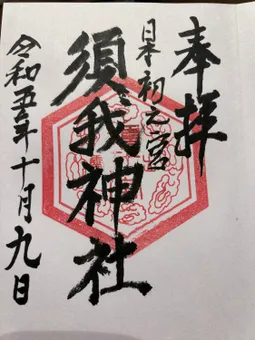 奉拝
日本初之宮
須我神社
令和五年十月九日